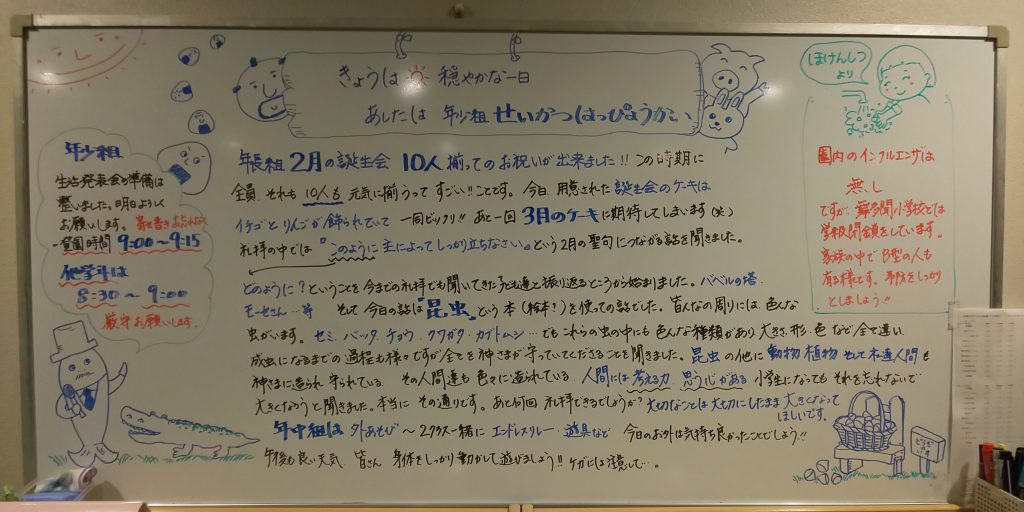 きょうは 穏やかな一日
あしたは 年少組 せいかつはっぴょうかい
ほけんしつ
より
園内のインフルエンザは
無し
ですが 舞多聞小学校では
学級閉鎖をしています。
家族の中で B型の人も
有る様です。予防をしっかり
としましょう!!
年少組
生活発表会の準備は
整いました。明日よろしく
お願いします。寄せ書きおわすれなく
登園時間 9:00〜9:15
他学年は
8:30〜9:00
厳守お願いします。
年長組 2月の誕生会 10人揃ってのお祝いが出来ました!! この時期に
全員 それも 10人も 元気に揃うって すごい!! ことです。今日 用意された 誕生会のケーキは
イチゴとりんごが飾られていて 一同ビックリ!! あと一回 3月のケーキに期待してしまいます(笑)
礼拝の中では『このように主によってしっかり立ちなさい。』という2月の聖句につながる話を聞きました。
どのように?ということを今までの礼拝でも聞いてきた子ども達と振り返るところから始まりました。バベルの塔
モーセさん…等 そして今日の話は『昆虫』という本(絵本?)を使っての話でした。皆んなの周りには、色んな
虫がいます。セミ、バッタ、チョウ、クワガタ、カブトムシ…でもこれらの虫の中にも 色んな種類があり 大きさ、形、色 など全て違い
成虫になるまでの過程も様々ですが全てを神さまが守っていてくださることを聞きました。昆虫の他に動物 植物 そして私達人間も
神さまに造られ 守られている その人間達も 色々に造られている 人間には考える力 思う心がある 小学生になっても それを忘れないで
大きくなろうと聞きました。本当に その通りです。あと何回 礼拝できるでしょうか? 大切なことは 大切にしたまま 大きくなって
ほしいです。
年中組は 外あそび 〜2クラス一緒に エンドレスリレー・遊具など 今日のお外は気持ち良かったことでしょう!!
午後も良い天気 皆さん 身体をしっかり動かして遊びましょう!! ケガには注意して…。